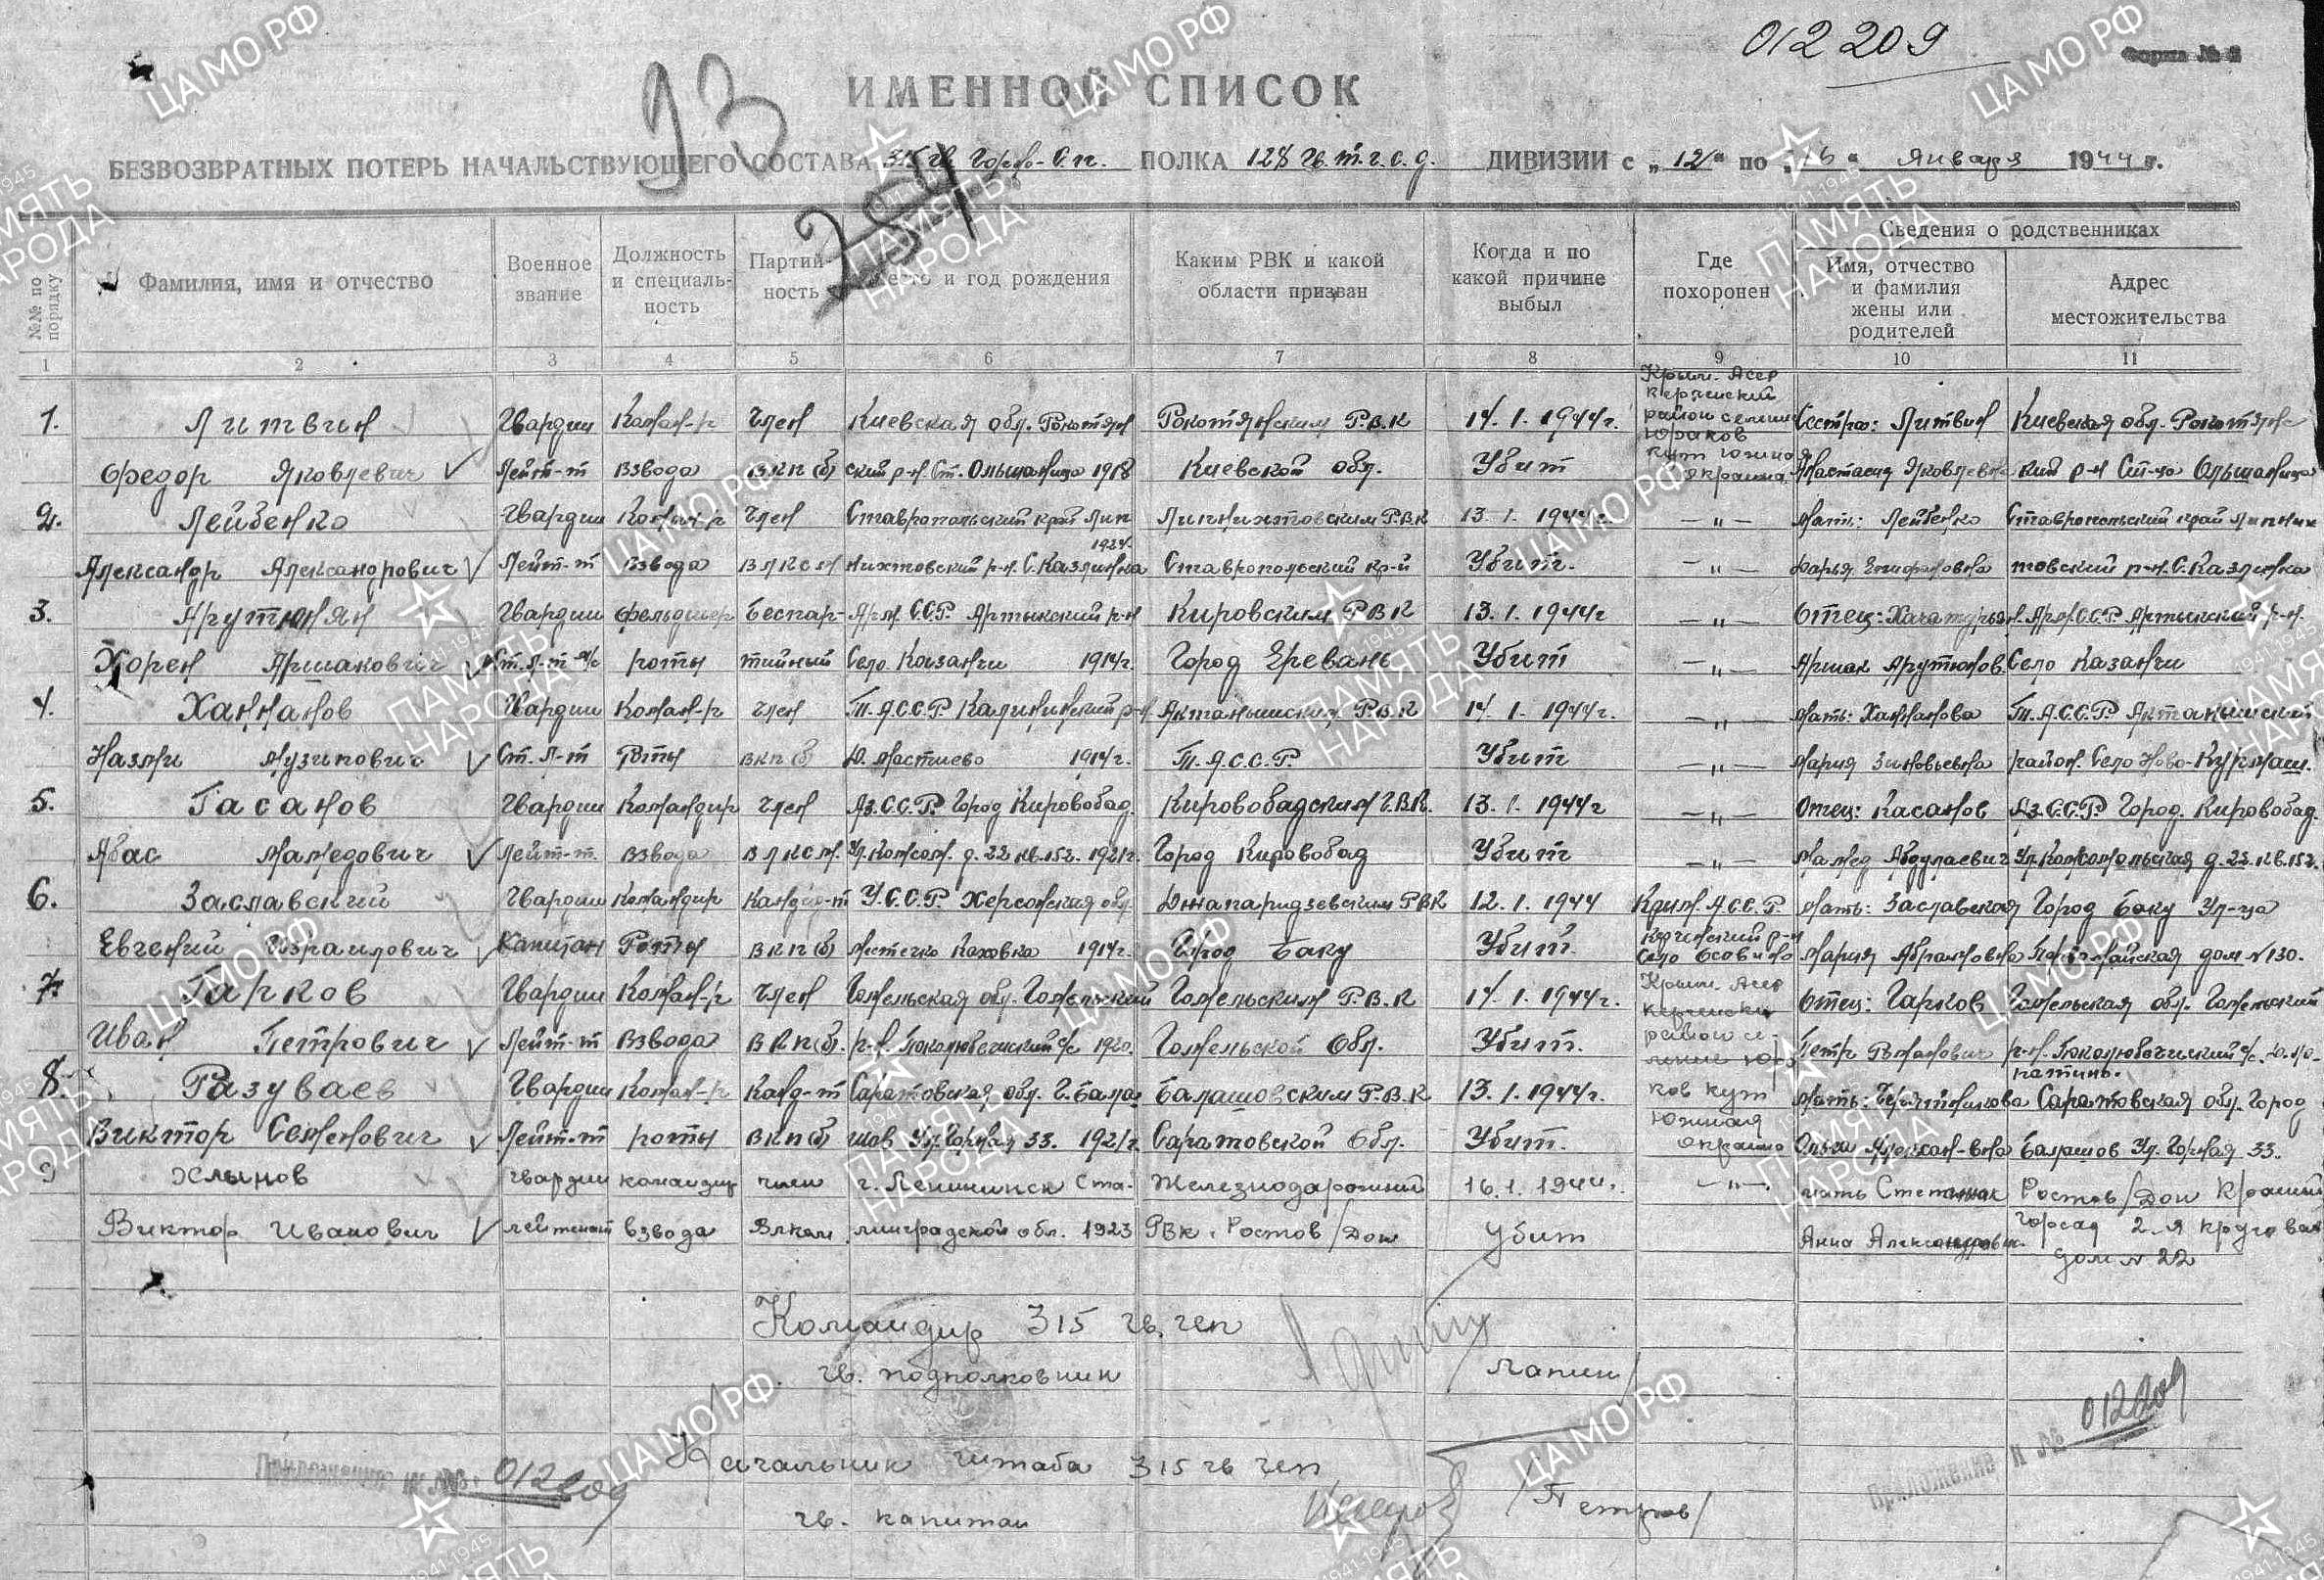 012209
Форма № 2
93
ИМЕННОЙ СПИСОК
БЕЗВОЗВРАТНЫХ ПОТЕРЬ НАЧАЛЬСТВУЮЩЕГО СОСТАВА 315 гв Горно-С.п. ПОЛКА 128 гв. т. г. с. д. ДИВИЗИИ с „12" по „16" января 1944 г.
254
№№ по порядку
Фамилия, имя и отчество
Военное звание
Должность и специальность
Партийность
Место и год рождения
Каким РВК и какой области призван
Когда и по какой причине выбыл
Где похоронен
Сведения о родственниках
Имя, отчество и фамилия жены или родителей
Адрес местожительства
1 2 3 4 5 6 7 8 9 10 11
1. Литвин Гвардии Коман-р член Киевская обл. Рокотян Рокотянским Р.В.К 14.1.1944г. Крым. Асср Керченский район селение Юраков кут Южная окраина Сестра: Литвин Киевская обл. Рокотянс
Федор Яковлевич Лейт-т взвода ВКП(б) ский р-н. Ст. Ольшаница 1918 Киевской обл. Убит Анастасия Яковлевна кий р-н Ст-ца Ольшаница
2. Лейбенко Гвардии Коман-р член Ставропольский край Лип Липнихтовским Р.В.К 13.1.1944г — " — Мать: Лейбенко Ставропольский край Липних
Александр Александрович Лейт-т взвода ВЛКСМ нихтовский р-н. С. Казлинка 1924. Ставропольский кр-й Убит. — " — Дарья Епифановна товский р-н. С. Казлинка
3. Арутюнян Гвардии фельдшер Беспар- Арм. С.С.Р. Артыкский р-н Кировским Р В К 13.1.1944г — " — Отец: Хачатурян Арм. С.С.Р. Артыкский р-н.
Хорен Аршакович Ст. Л-т м/с роты тийный Село Казанчи 1914г. Город Еревань Убит — " — Аршак Арутюнов. Село Казанчи
4. Ханнанов Гвардии Коман-р член Т.А.С.С.Р. Калининский р-н Актанышским Р.В.К 14.1.1944г. — " — Мать: Ханнанова Т.А.С.С.Р. Актанышский
Назми Музипович Ст. Л-т Роты ВКП(б) Д. Мастиево 1914г. Т.А.С.С.Р. Убит — " — Мария Зиновьевна район. Село Ново-Курмаш.
5. Гасанов Гвардии Командир член Аз.С.С.Р. Город Кировобад. Кировобадским Г.В.К. 13.1.1944г — " — Отец: Касанов Аз.С.С.Р. Город. Кировобад.
Абас Мамедович Лейт-т. взвода ВЛКСМ. Ул. Комсом. д. 22 кв. 152. 1921г. Город Кировобад Убит — " — Мамед Абдулаевич Ул. Комсомольская д. 22. кв. 152.
6. Заславский Гвардии Командир Кандид-т У.С.С.Р. Херсонская обл. Джапаридзевским РВК 12.1.1944 Крым. А.С.С.Р. Мать: Заславская Город Баку Ул-ца
Евгений Израилович Капитан Роты ВКП(б) местечко Каховка 1914г. Город Баку Убит. Керченский р-н Село Осовино Мария Абрамовна Первомайская дом №130.
7. Гарков Гвардии Коман-р член Гомельская обл. Гомельский Гомельским Р.В.К 14.1.1944г. Крым. Асср Керченский район селение Юраков кут Южная окраина Отец: Гарков Гомельская обл. Гомельский
Иван Петрович Лейт-т взвода ВКП(б). р-н. Поколюбичиский с/с 1920. Гомельской Обл. Убит. Петр Романович р-н. Поколюбичиский с/с.
8. Разуваев Гвардии Коман-р Канд-т Саратовская обл. Г. Балаш Балашовским Р.В.К 13.1.1944г. Мать: Саратовская обл. Город
Виктор Семенович Лейт-т роты ВКП(б) шов Ул. Горная 33. 1921г. Саратовской Обл. Убит. Ольга Балашов Ул. Горная 33.
9 Хлынов гвардии командир член г. Ленининск Ста- Железнодорожный 16.1.1944г. — " — мать Степанюк Ростов/Дон Красный
Виктор Иванович лейтенант взвода Влксм линградской обл. 1923 РВк. Ростов/Дон Убит Анна Александровна. Горсад 2-я круговая
дом № 22
Командир 315 гв. гсп
гв. подполковник /Лапин/
Начальник штаба 315 гв гсп
гв. капитан /Петров/
Приложение к №: 012209
Приложение к № 012209
ЦАМО РФ
ПАМЯТЬ НАРОДА
1941-1945